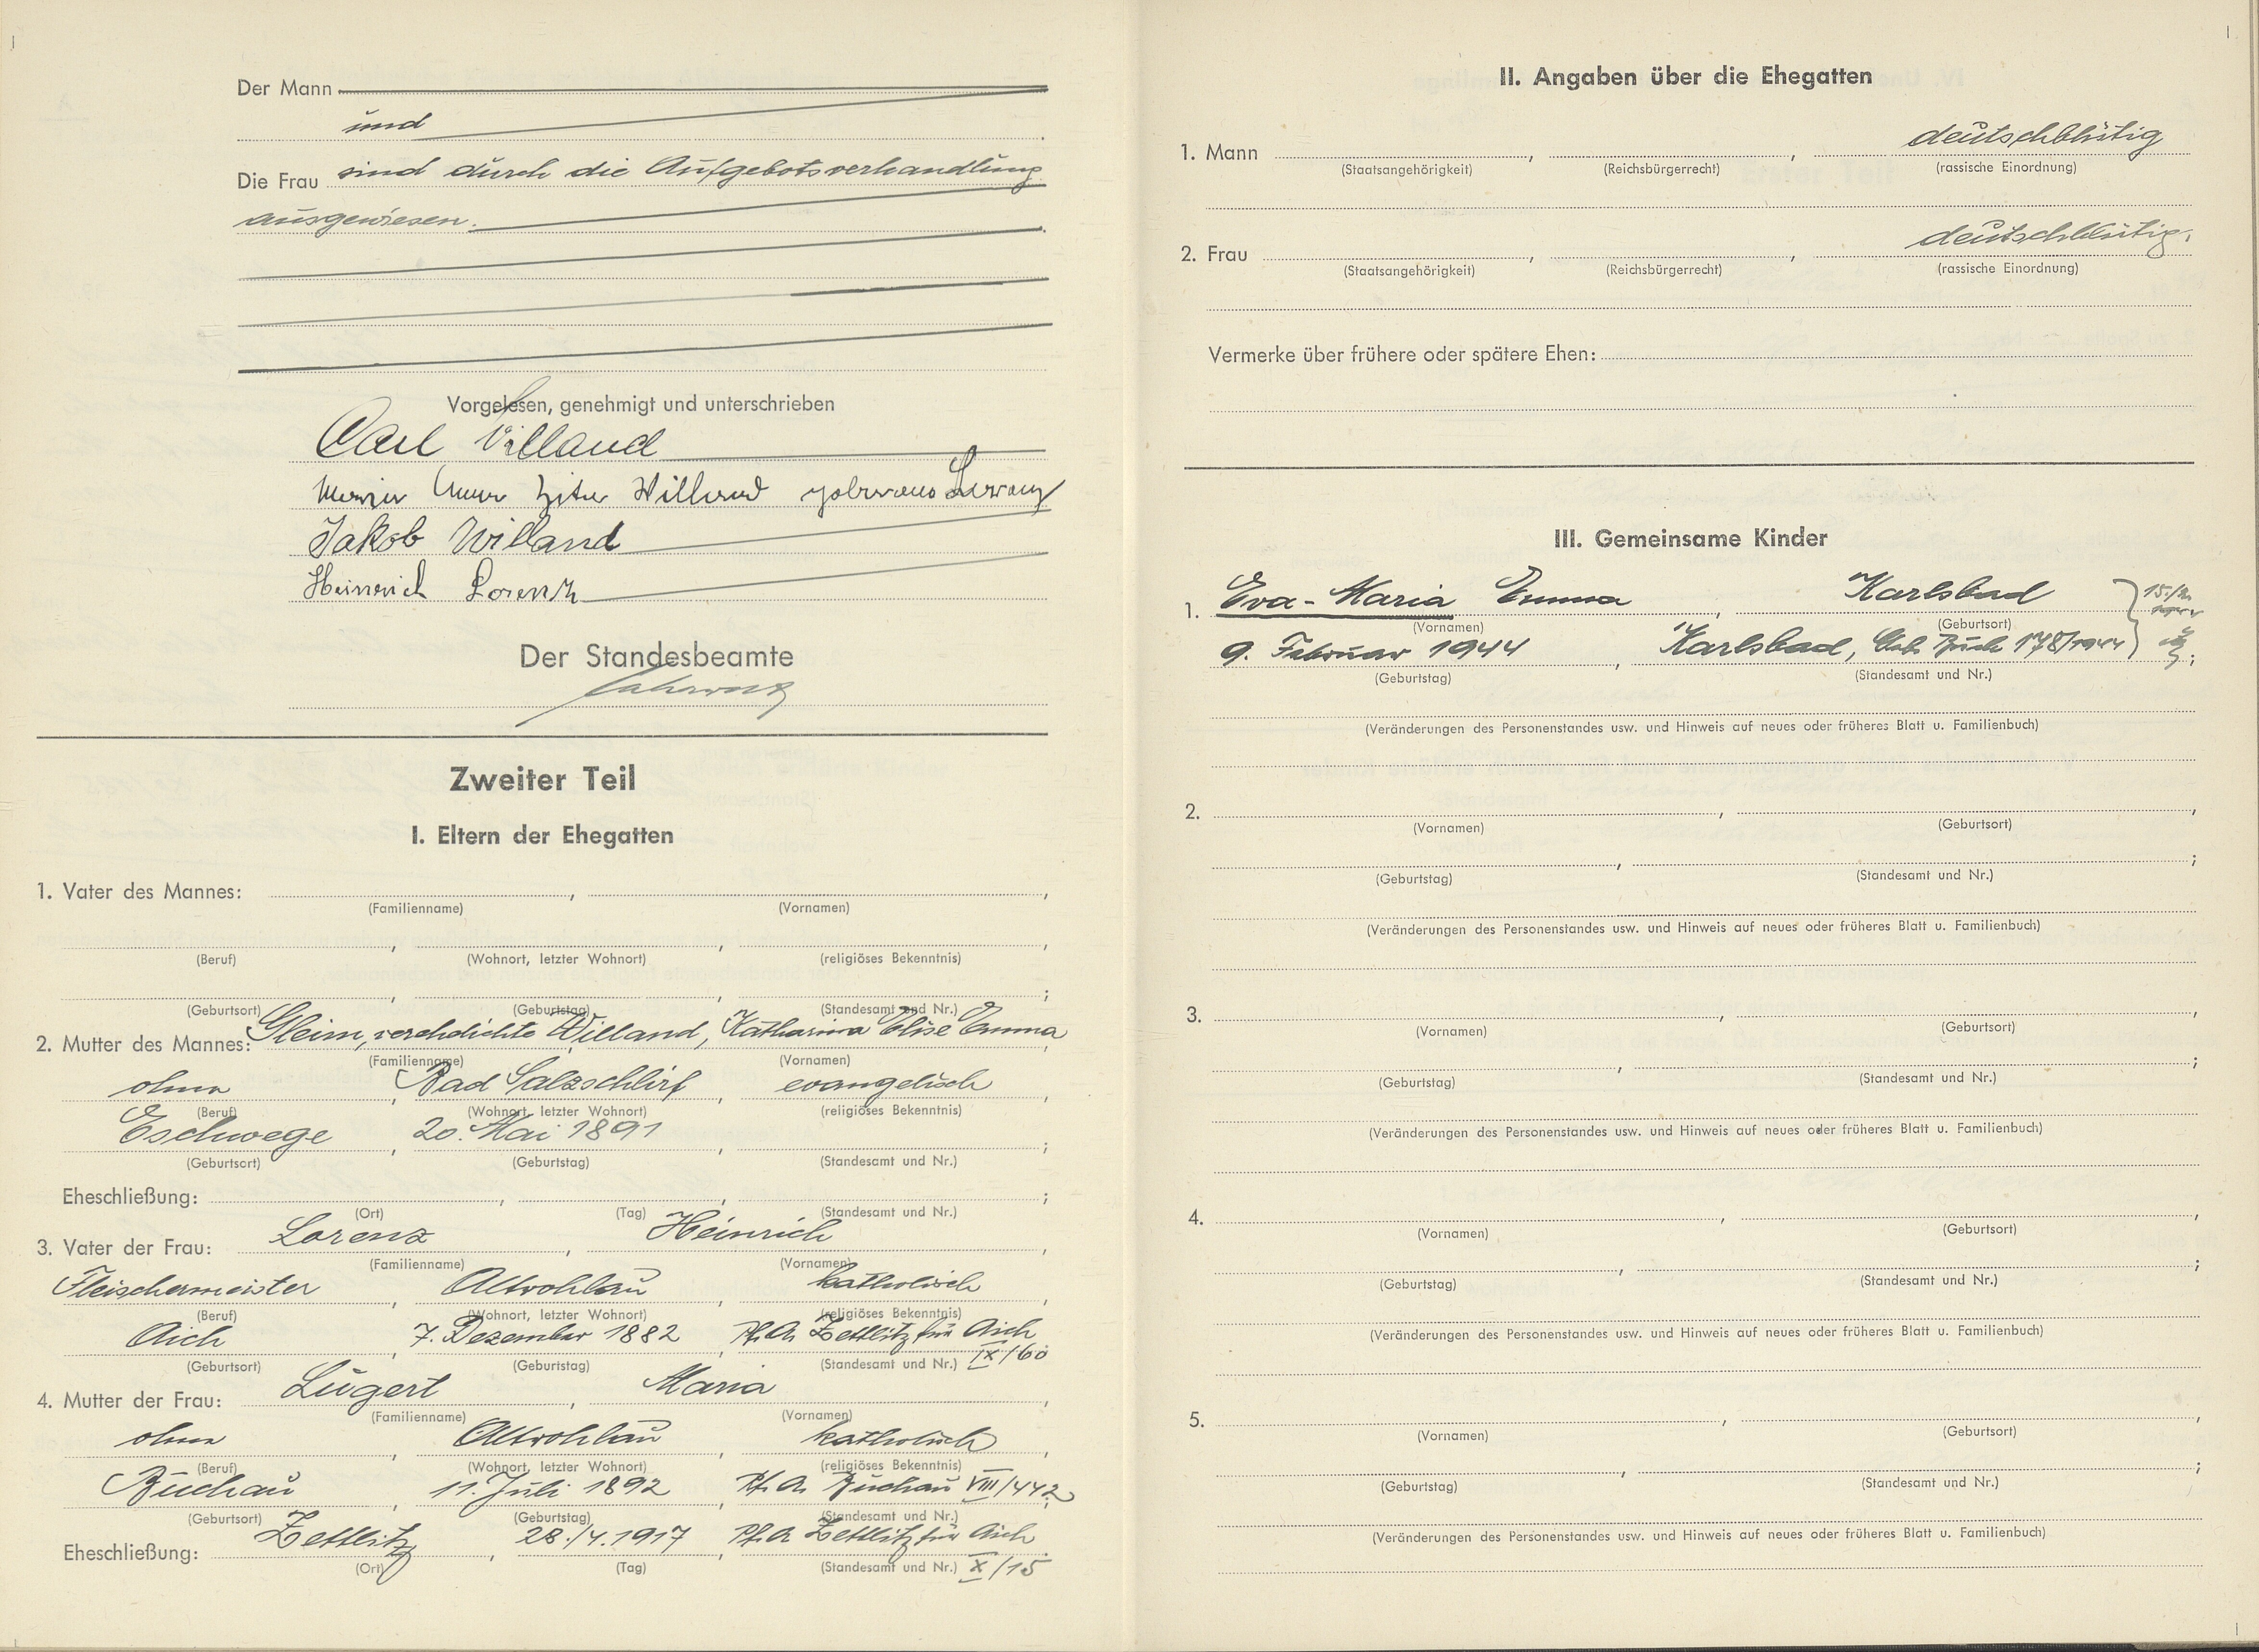 Der Mann
und
Die Frau sind durch die Aufgebotsverhandlung
ausgewiesen.
Vorgelesen, genehmigt und unterschrieben
Carl Willand
Maria Anna Zita Willand geborene Lorenz
Jakob Willand
Heinrich Lorenz
Der Standesbeamte
Zweiter Teil
I. Eltern der Ehegatten
1. Vater des Mannes: , ,
(Familienname) (Vornamen)
, , ,
(Beruf) (Wohnort, letzter Wohnort) (religiöses Bekenntnis)
, , ;
(Geburtsort) (Geburtstag) (Standesamt und Nr.)
2. Mutter des Mannes: Gleim, verehelichte Willand, Katharina Elise Emma
(Familienname) (Vornamen)
ohne , Bad Salzschlirf , evangelisch ,
(Beruf) (Wohnort, letzter Wohnort) (religiöses Bekenntnis)
Eschwege , 20. Mai 1891 , ;
(Geburtsort) (Geburtstag) (Standesamt und Nr.)
Eheschließung: , , ;
(Ort) (Tag) (Standesamt und Nr.)
3. Vater der Frau: Lorenz , Heinrich ,
(Familienname) (Vornamen)
Fleischermeister , Altrohlau , katholisch ,
(Beruf) (Wohnort, letzter Wohnort) (religiöses Bekenntnis)
Aich , 7. Dezember 1882 , Pf. A. Zettlitz für Aich
(Geburtsort) (Geburtstag) (Standesamt und Nr.) IX/60
4. Mutter der Frau: Lugert , Maria ,
(Familienname) (Vornamen)
ohne , Altrohlau , katholisch ,
(Beruf) (Wohnort, letzter Wohnort) (religiöses Bekenntnis)
Buchau , 11. Juli 1892 , Pf. A. Buchau VIII/442 ;
(Geburtsort) (Geburtstag) (Standesamt und Nr.)
Eheschließung: Zettlitz , 28./4.1917 , Pf. A Zettlitz für Aich
(Ort) (Tag) (Standesamt und Nr.) X/15
II. Angaben über die Ehegatten
1. Mann , , deutschblütig
(Staatsangehörigkeit) (Reichsbürgerrecht) (rassische Einordnung)
2. Frau , , deutschblütig.
(Staatsangehörigkeit) (Reichsbürgerrecht) (rassische Einordnung)
Vermerke über frühere oder spätere Ehen:
III. Gemeinsame Kinder
1. Eva-Maria Emma , Karlsbad
(Vornamen) (Geburtsort)
9. Februar 1944 , Karlsbad, Geb. Buch 178/1944 ;
(Geburtstag) (Standesamt und Nr.)
(Veränderungen des Personenstandes usw. und Hinweis auf neues oder früheres Blatt u. Familienbuch)
2. , ,
(Vornamen) (Geburtsort)
, ;
(Geburtstag) (Standesamt und Nr.)
(Veränderungen des Personenstandes usw. und Hinweis auf neues oder früheres Blatt u. Familienbuch)
3. , ,
(Vornamen) (Geburtsort)
, ;
(Geburtstag) (Standesamt und Nr.)
(Veränderungen des Personenstandes usw. und Hinweis auf neues oder früheres Blatt u. Familienbuch)
4. , ,
(Vornamen) (Geburtsort)
, ;
(Geburtstag) (Standesamt und Nr.)
(Veränderungen des Personenstandes usw. und Hinweis auf neues oder früheres Blatt u. Familienbuch)
5. , ,
(Vornamen) (Geburtsort)
, ;
(Geburtstag) (Standesamt und Nr.)
(Veränderungen des Personenstandes usw. und Hinweis auf neues oder früheres Blatt u. Familienbuch)